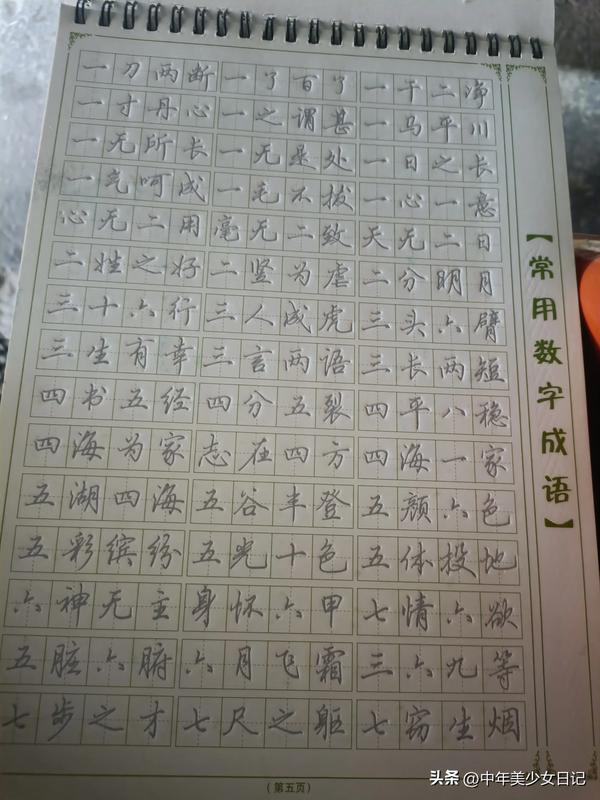 一刀两断 一了百了 一干二净
一寸丹心 一之谓甚 一马平川
一无所长 一无是处 一日之长
一气呵成 一毛不拔 一心一意
心无二用 毫无二致 天无二日
二姓之好 二竖为虐 二分明月
三十六行 三人成虎 三头六臂
三生有幸 三言两语 三长两短
四书五经 四分五裂 四平八稳
四海为家 志在四方 四海一家
五湖四海 五谷丰登 五颜六色
五彩缤纷 五光十色 五体投地
六神无主 身怀六甲 七情六欲
五脏六腑 六月飞霜 三六九等
七步之才 七尺之躯 七窍生烟
【常用数字成语】
(第五页)
头条 @中年美少女日记